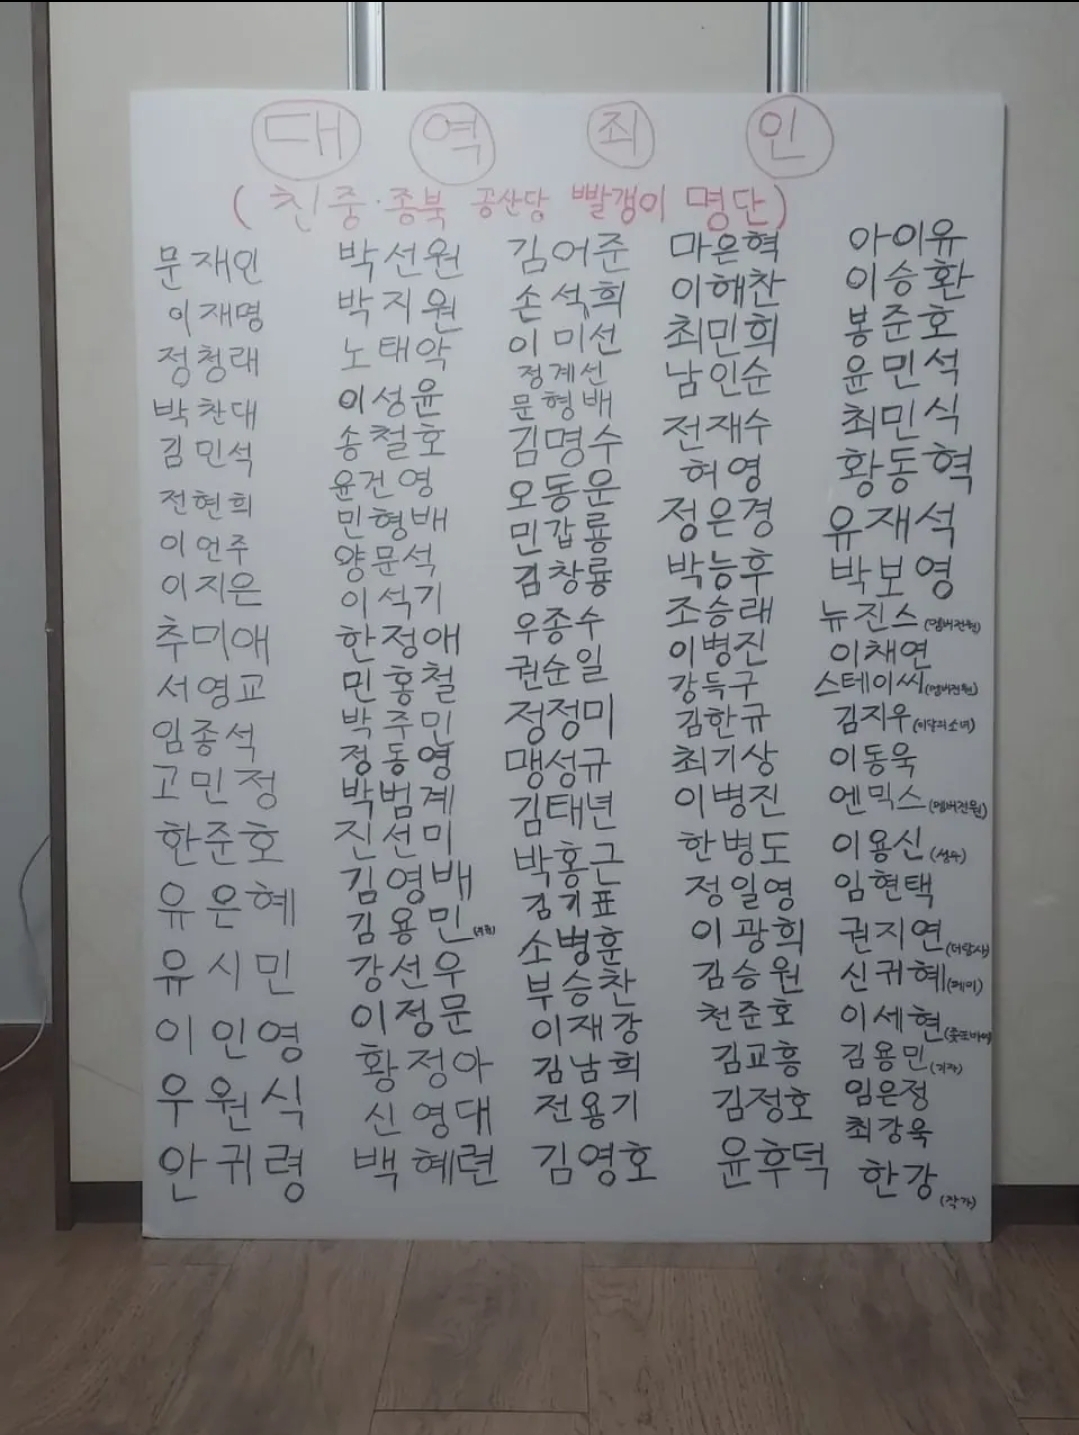 대 역 죄 인
( 친중·종북 공산당 빨갱이 명단)
문재인
이재명
정청래
박찬대
김민석
전현희
이언주
이지은
추미애
서영교
임종석
고민정
한준호
유은혜
유시민
이인영
우원식
안귀령
박선원
박지원
노태악
이성윤
송철호
윤건영
민형배
양문석
이석기
한정애
민홍철
박주민
정동영
박범계
진선미
김영배
김용민
강선우
이정문
황정아
신영대
백혜련
김어준
손석희
이미선
정계선
문형배
김명수
오동운
민갑룡
김창룡
우종수
권순일
정정미
맹성규
김태년
박홍근
김기표
소병훈
부승찬
이재강
김남희
전용기
김영호
마은혁
이해찬
최민희
남인순
전재수
허영
정은경
박능후
조승래
이병진
강득구
김한규
최기상
이병진
한병도
정일영
이광희
김승원
천준호
김교흥
김정호
윤후덕
아이유
이승환
봉준호
윤민석
최민식
황동혁
유재석
박보영
뉴진스(멤버전원)
이채연
스테이씨(멤버전원)
김지우(이달의소녀)
이동욱
엔믹스(멤버전원)
이용신(성우)
임현택
권지연(더탐사)
신귀혜
이세현
김용민(기자)
임은정
최강욱
한강(작가)